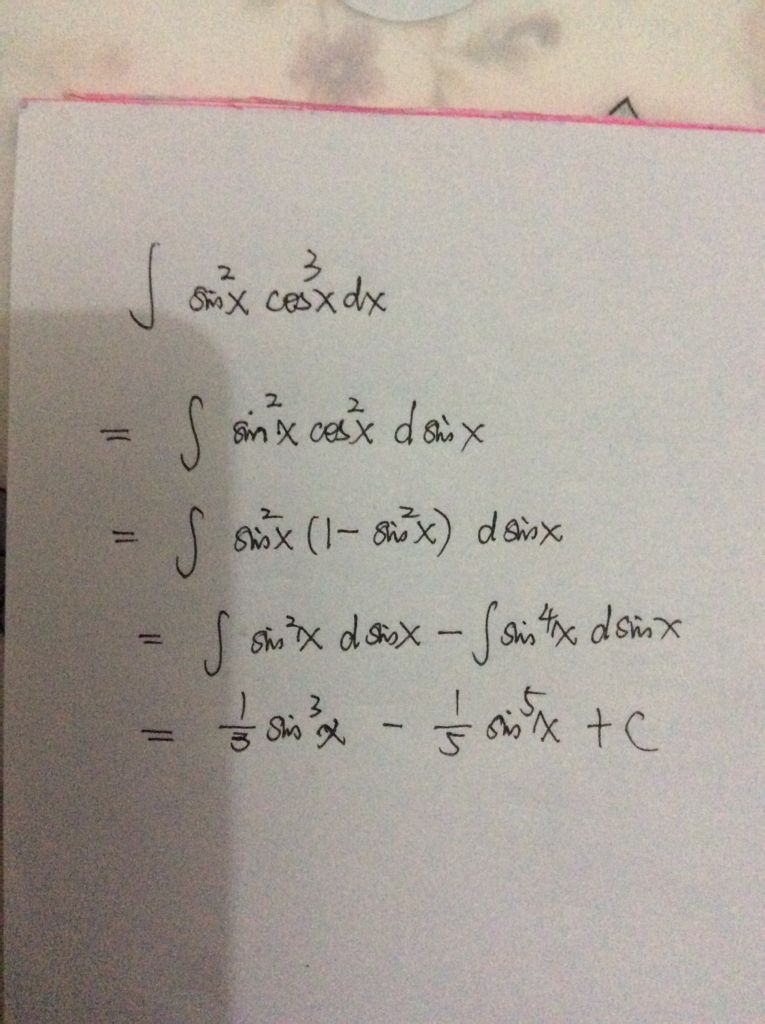 ∫ sin²x cos³x dx
= ∫ sin²x cos²x d sin x
= ∫ sin²x (1 − sin²x) d sin x
= ∫ sin²x d sin x − ∫ sin⁴x d sin x
= 1/3 sin³x − 1/5 sin⁵x + C